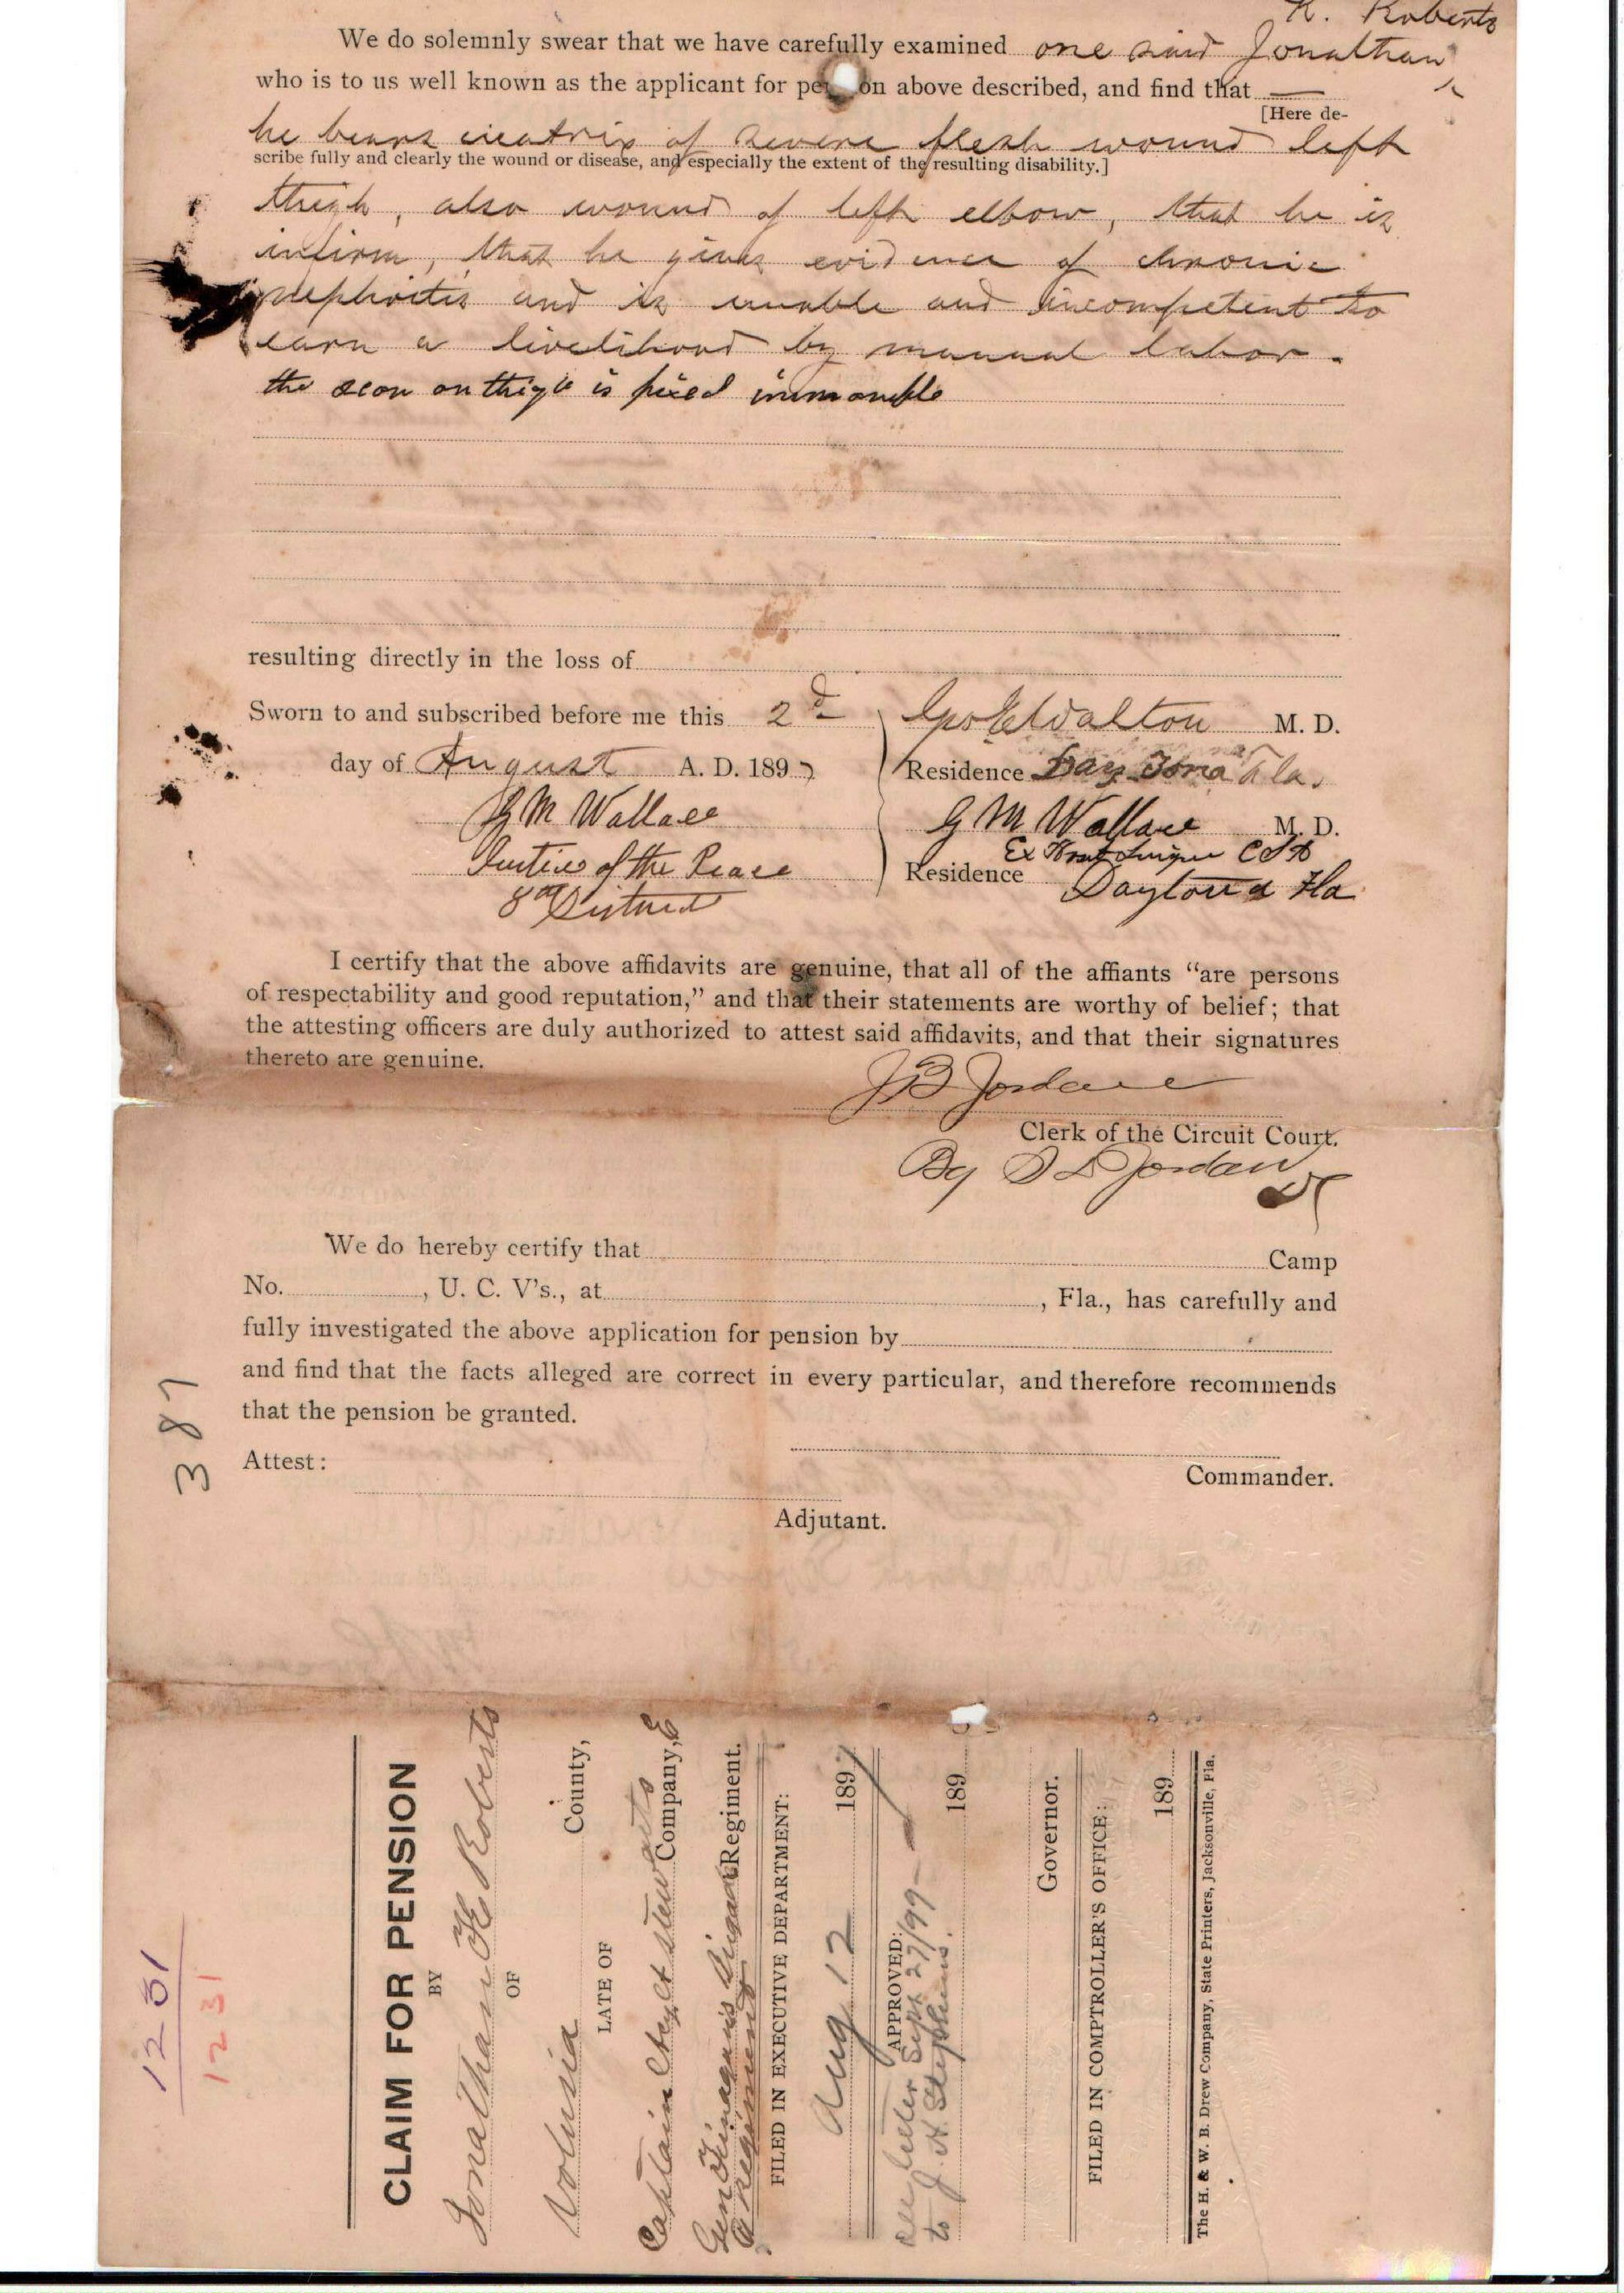 K. Roberts
We do solemnly swear that we have carefully examined one said Jonathan ^
who is to us well known as the applicant for pe on above described, and find that
[Here de-
he bears cicatrix of severe flesh wound left
scribe fully and clearly the wound or disease, and especially the extent of the resulting disability.]
thigh, also wound of left elbow, that he is
infirm, that he gives evidence of chronic
nephritis and is unable and incompetent to
earn a livelihood by manual labor.
the scar on thigh is fixed immovable
resulting directly in the loss of
Sworn to and subscribed before me this 2d
Walton M. D.
day of August A. D. 1897
Residence Daytona Fla.
G M Wallace
G M Wallace M. D.
Justice of the Peace
Ex
Residence
8th District
Daytona Fla
I certify that the above affidavits are genuine, that all of the affiants “are persons
of respectability and good reputation,” and that their statements are worthy of belief; that
the attesting officers are duly authorized to attest said affidavits, and that their signatures
thereto are genuine.
J B Jordan
Clerk of the Circuit Court.
By S D Jordan
We do hereby certify that Camp
No. , U. C. V's., at , Fla., has carefully and
fully investigated the above application for pension by
and find that the facts alleged are correct in every particular, and therefore recommends
that the pension be granted.
Attest:
Commander.
Adjutant.
387
1231
1231
CLAIM FOR PENSION
BY
Jonathan K Roberts
OF
Volusia County,
LATE OF
Captain Company, E
Gen Finagan's Brigade Regiment.
FILED IN EXECUTIVE DEPARTMENT:
Aug 12 1897
APPROVED:
See letter Sept 27/99
to J. H. Stephens. 189
Governor.
FILED IN COMPTROLLER'S OFFICE:
189
The H. & W. B. Drew Company, State Printers, Jacksonville, Fla.